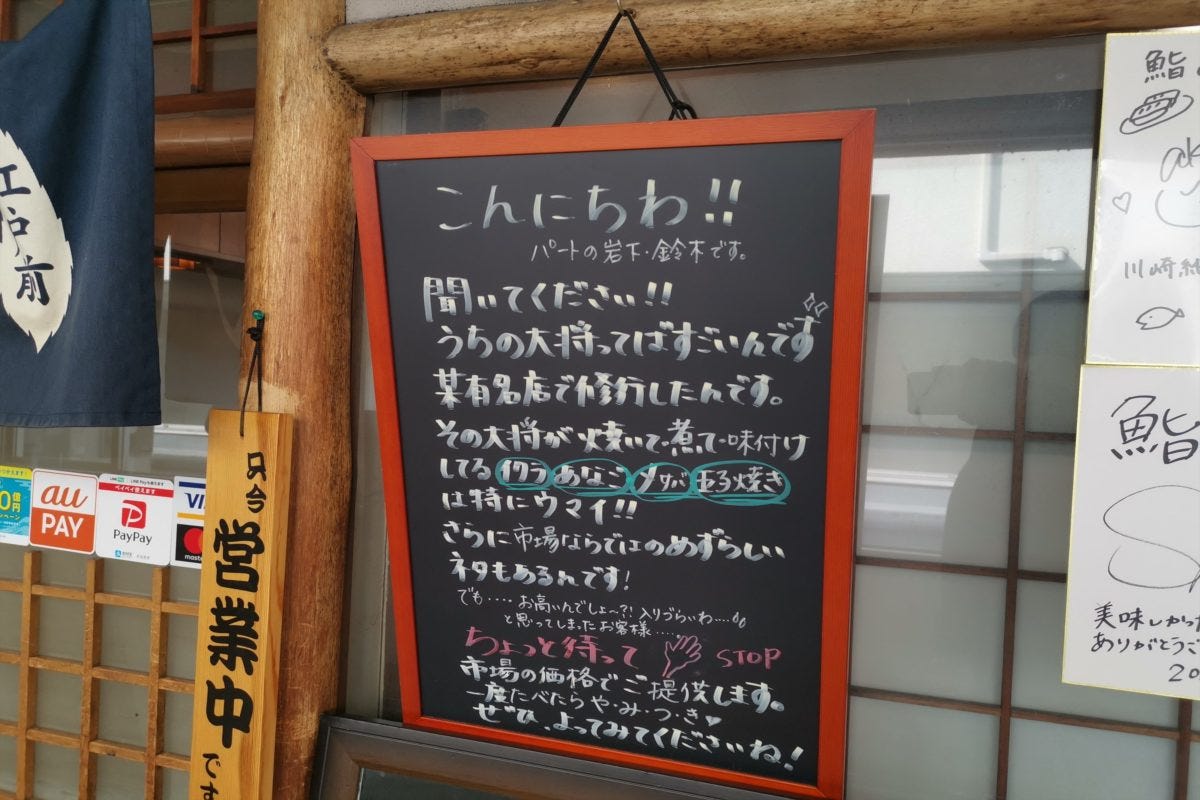 江戸前
au
PAY
PayPay
VI
mast
只今
営業中
です
こんにちわ!!
パートの岩下・鈴木です。
聞いてください!!
うちの大将ってばすごいんです
某有名店で修行したんです。
その大将が焼いて・煮て・味付け
してるイクラ あなご 〆サバ 玉子焼き
は特にウマイ!!
さらに市場ならではのめずらしい
ネタもあるんです!
でも・・・・お高いんでしょ〜?!入りづらいわ・・・・
と思ってしまったお客様・・・・
ちょっと待って STOP
市場の価格でご提供します。
一度たべたらや・み・つ・き♥
ぜひ、よってみてくださいね!
鮨
川崎
鮨
美味しかった
ありがとうご
20